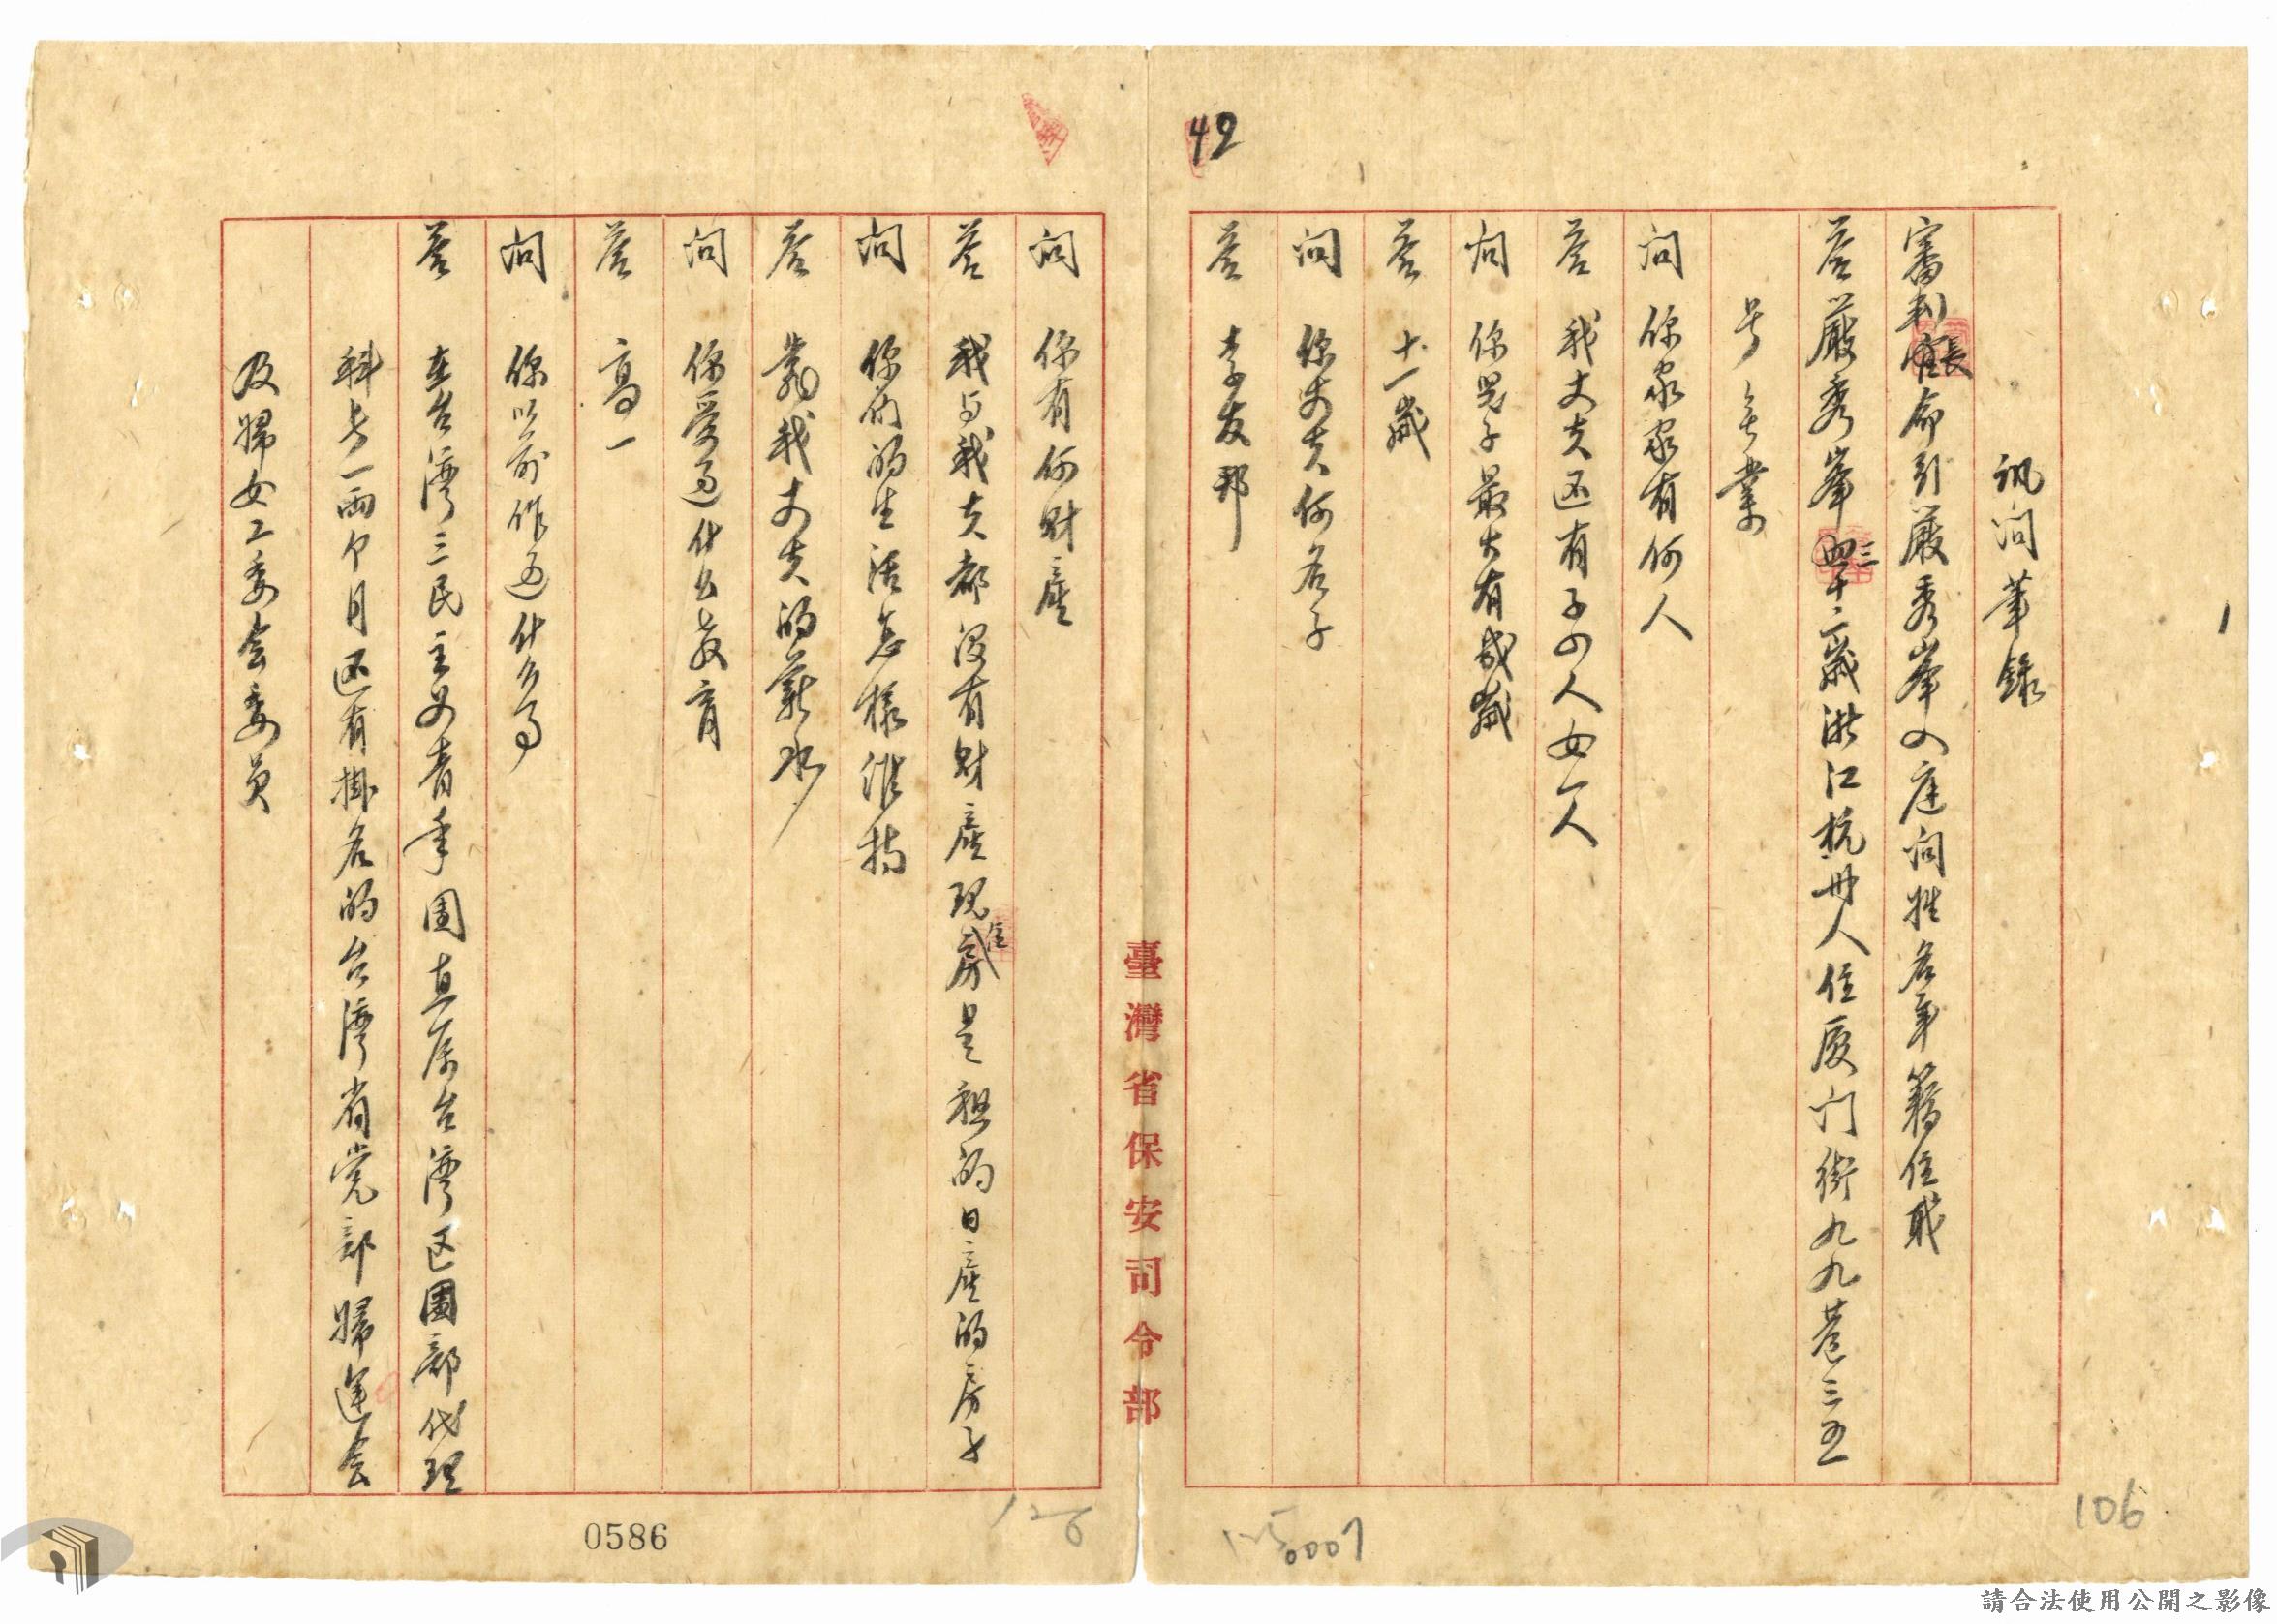 42
1
訊问筆錄
審判長命引嚴秀峯入庭问姓名年籍住职
答 嚴秀峯三十二歲浙江杭州人住厦门街九九巷三五
号无業
问 你家家有何人
答 我丈夫还有子四人女一人
问 你兒子最大有幾歲
答 十一歲
问 你丈夫何名子
答 李友邦
臺灣省保安司令部
问 你有何財產
答 我与我夫都没有財產现住房是租的日產的房子
问 你们的生活怎樣維持
答 靠我丈夫的薪水
问 你受过什么教育
答 高一
问 你以前作过什么事
答 在台湾三民主义青年团直属台湾区團部代理
科长一兩个月还有掛名的台湾省党部婦运会
及婦女工委会委员
106
125
0007
126
0586
請合法使用公開之影像